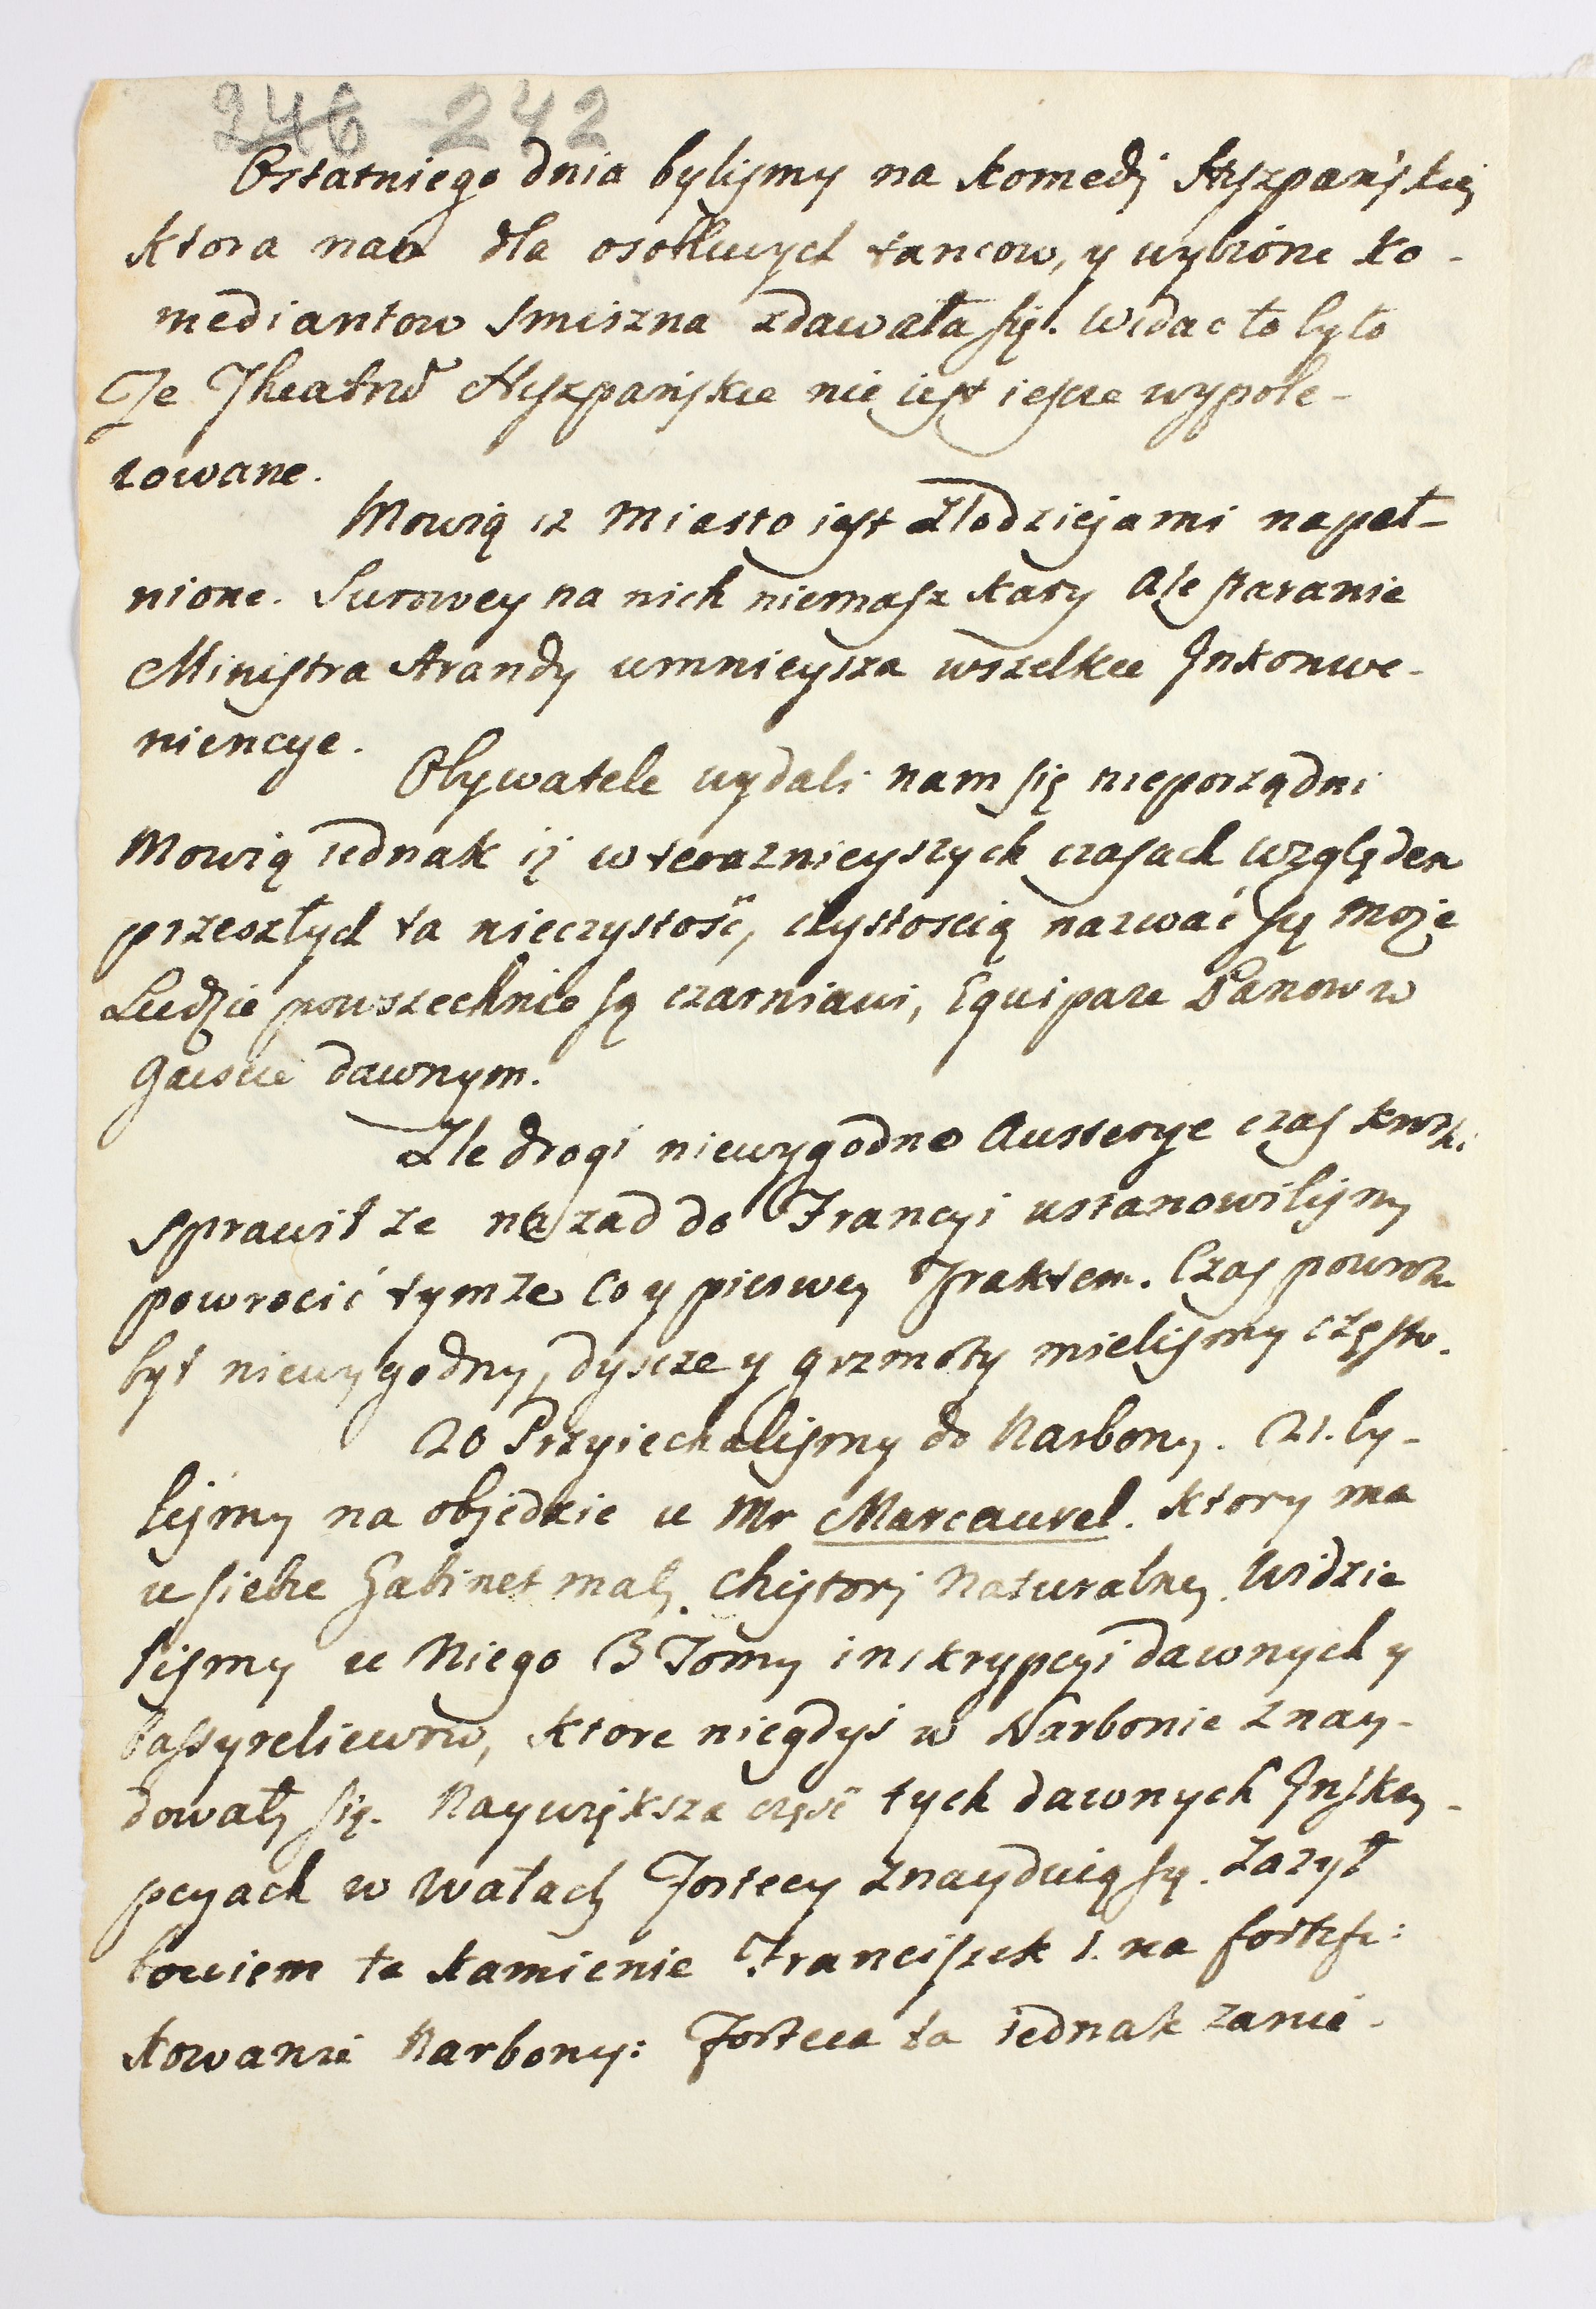 246 242
Ostatniego dnia bylismy na Komedÿ Hyszpańskiey
Ktora nam dla osobliwych tancow, y wybiorne Ko-
mediantow smieszna zdawała się. Widac to było
Ze Theatrū Hyszpańskie nie iest iescze wypole-
rowane.
Mowią iz Miasto iest Zlodziejami napeł-
nione. Surowey na nich niemasz Kary Ale staranie
Ministra Arandy umnieysza wszelkie Inkonwe-
niencye.
Obywatele wydali nam się nieporządni
Mowią iednak iż w teraznieyszych czasach względem
przeszłych ta nieczystość, czystoscią nazwać się może
Ludzie powszechnie są czarniawi, Equipaze Panow w
Guscie dawnym.
Zle drogi niewygodne Austerye czas krotki
sprawił ze nazad do Francyi ustanowilismy
powrocić tymze co y pierwey Traktem. Czas powrotu
był niewygodny, dyscze y grzmoty mielismy często.
20 Przyiechalismy do Narbony. 21. by-
lismy na objedzie u Mr Marcaurel. Ktory ma
u siebie Gabinet mały Chistorÿ Naturalney. Widzie
lismy u Niego 3 Tomy inskrypcyi dawnych y
bassyreliewow, Ktore niegdys w Narbonie znay-
dowały się. Naywiększa część tych dawnych Inskry-
pcyach w Wałach Fortecy znayduią się. Zazył
bowiem te Kamienie Franciszek 1. na fortyfi:
Kowanie Narbony: Forteca ta iednak zanie-